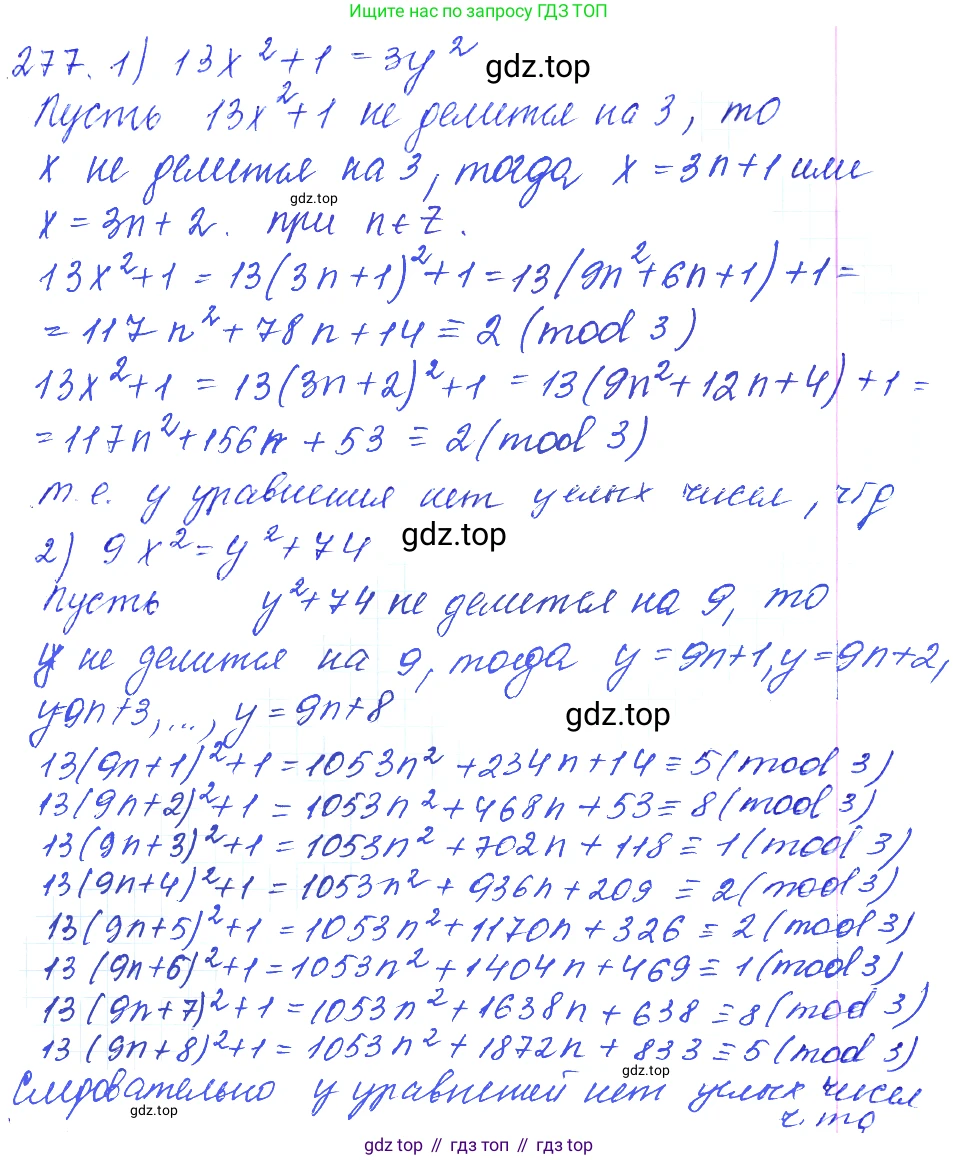 Ищите нас по запросу ГДЗ ТОП
277. 1) 13x² + 1 = 3y²
gdz.top
Пусть 13x² + 1 не делится на 3, то
x не делится на 3, тогда x = 3n + 1 или
gdz.top
x = 3n + 2. при n ∈ Z.
13x² + 1 = 13(3n + 1)² + 1 = 13(9n² + 6n + 1) + 1 =
= 117n² + 78n + 14 ≡ 2 (mod 3)
13x² + 1 = 13(3n + 2)² + 1 = 13(9n² + 12n + 4) + 1 =
= 117n² + 156n + 53 ≡ 2 (mod 3)
т. е. у уравнения нет целых чисел, чтд
gdz.top
2) 9x² = y² + 74
Пусть y² + 74 не делится на 9, то
y не делится на 9, тогда y = 9n + 1, y = 9n + 2,
y = 9n + 3, ..., y = 9n + 8
gdz.top
13(9n + 1)² + 1 = 1053n² + 234n + 14 ≡ 5 (mod 3)
13(9n + 2)² + 1 = 1053n² + 468n + 53 ≡ 8 (mod 3)
13(9n + 3)² + 1 = 1053n² + 702n + 118 ≡ 1 (mod 3)
13(9n + 4)² + 1 = 1053n² + 936n + 209 ≡ 2 (mod 3)
13(9n + 5)² + 1 = 1053n² + 1170n + 326 ≡ 2 (mod 3)
13(9n + 6)² + 1 = 1053n² + 1404n + 469 ≡ 1 (mod 3)
13(9n + 7)² + 1 = 1053n² + 1638n + 638 ≡ 8 (mod 3)
13(9n + 8)² + 1 = 1053n² + 1872n + 833 ≡ 5 (mod 3)
gdz.top
Следовательно у уравнений нет целых чисел
gdz.top
ч. тд
gdz top // гдз топ // gdz top